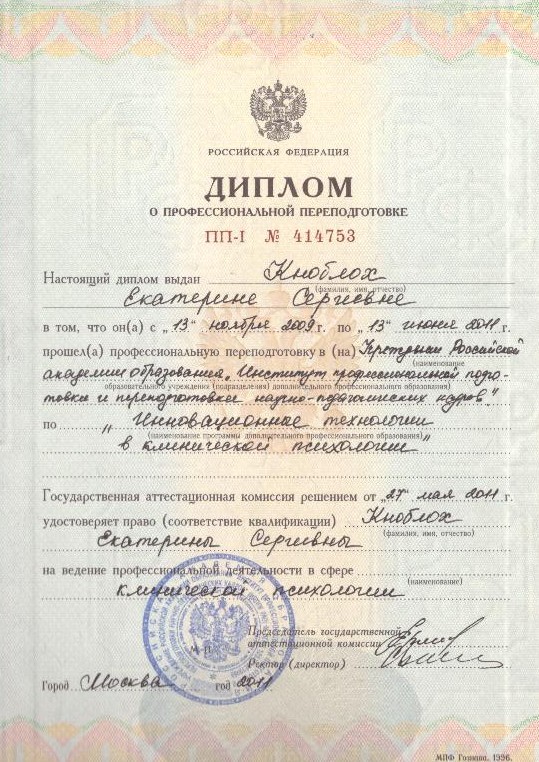 РОССИЙСКАЯ ФЕДЕРАЦИЯ
ДИПЛОМ
О ПРОФЕССИОНАЛЬНОЙ ПЕРЕПОДГОТОВКЕ
ПП-I № 414753
Настоящий диплом выдан Кноблох
(фамилия, имя, отчество)
Екатерине Сергиевне
в том, что он(а) с „13“ ноября 2009 г. по „13“ июня 2011 г.
прошел(а) профессиональную переподготовку в (на) Российской
(наименование
академии образования „Институт профессиональной подго-
образовательного учреждения (подразделения) дополнительного профессионального образования)
товки и переподготовки научно-педагогических кадров“
по „Инновационные технологии
(наименование программы дополнительного профессионального образования)
в клинической психологии“
Государственная аттестационная комиссия решением от „27“ мая 2011 г.
удостоверяет право (соответствие квалификации) Кноблох
(фамилия, имя, отчество)
Екатерины Сергиевны
на ведение профессиональной деятельности в сфере
(наименование)
клинической психологии
Председатель государственной
М.П. аттестационной комиссии
Ректор (директор)
Город Москва год 2011
МПФ Гознака. 1996.